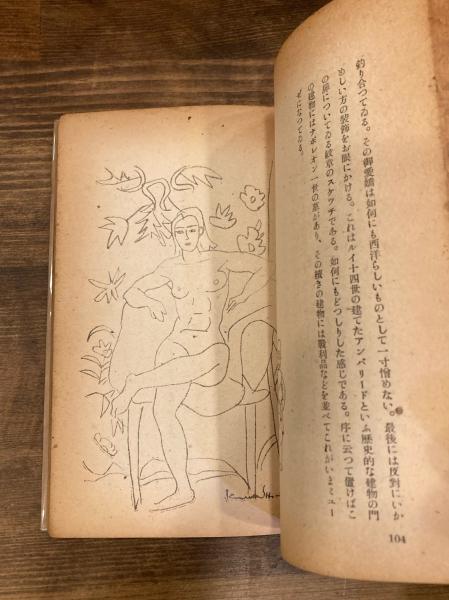 釣り合つてゐる。その御愛嬌は如何にも西洋らしいものとして一寸憎めない。最後には反對にいか
めしい方の裝飾をお眼にかける。これはルイ十四世の建てたアンバリードといふ歷史的な建物の門
の扉についてゐる紋章のスケツチである。如何にもどつしりした感じである。序に云つて置けばこ
の建物にはナポレオン一世の墓があり、その橫きの建物には戰利品などを並べてこれがいまミュー
ゼになつてゐる。
104